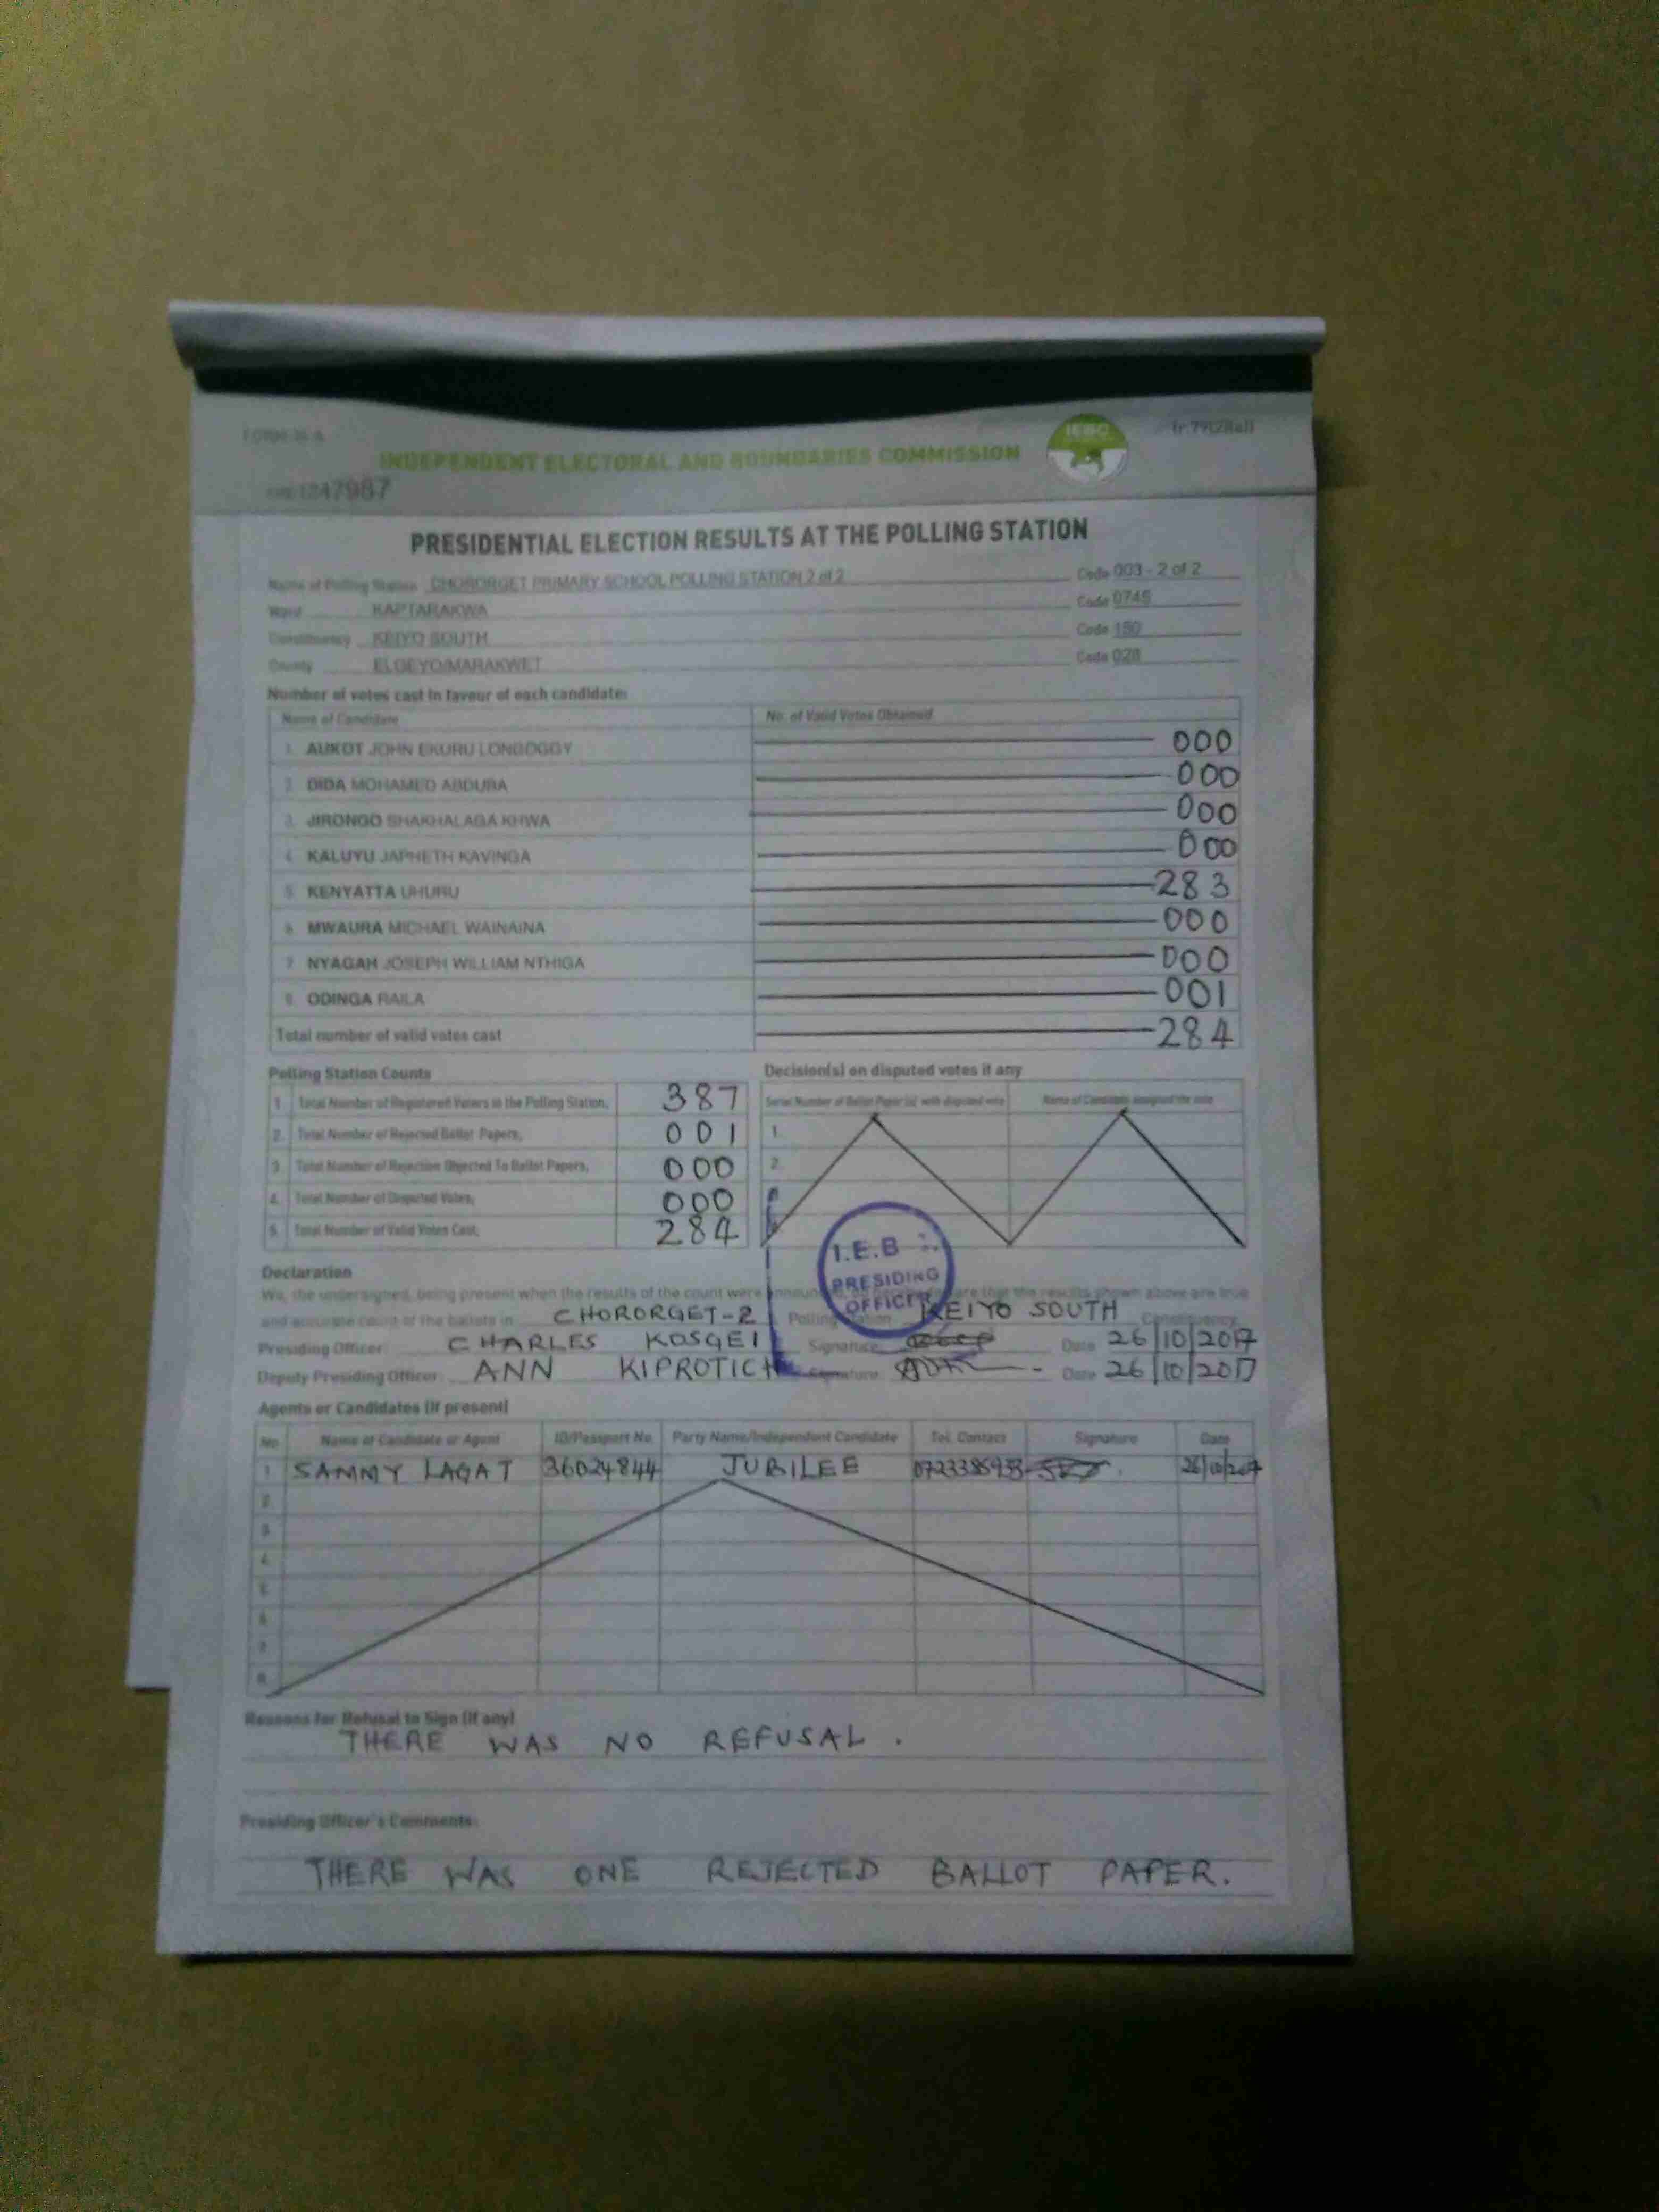 FORM 34 A
INDEPENDENT ELECTORAL AND BOUNDARIES COMMISSION
IEBC
47987
PRESIDENTIAL ELECTION RESULTS AT THE POLLING STATION
Name of Polling Station CHORORGET PRIMARY SCHOOL POLLING STATION 2 of 2 Code 003 - 2 of 2
Ward KAPTARAKWA Code 0745
Constituency KEIYO SOUTH Code 150
County ELGEYO/MARAKWET Code 028
Number of votes cast in favour of each candidate:
Name of Candidate No. of Valid Votes Obtained
1. AUKOT JOHN EKURU LONGOGGY 000
2. DIDA MOHAMED ABDUBA 000
3. JIRONGO SHAKHALAGA KHWA 000
4. KALUYU JAPHETH KAVINGA 000
5. KENYATTA UHURU 283
6. MWAURA MICHAEL WAINAINA 000
7. NYAGAH JOSEPH WILLIAM NTHIGA 000
8. ODINGA RAILA 001
Total number of valid votes cast 284
Polling Station Counts
1. Total Number of Registered Voters in the Polling Station, 387
2. Total Number of Rejected Ballot Papers, 001
3. Total Number of Rejection Objected To Ballot Papers, 000
4. Total Number of Disputed Votes, 000
5. Total Number of Valid Votes Cast, 284
Decision(s) on disputed votes if any
Serial Number of Ballot Paper (s) with disputed vote Name of Candidate assigned the vote
1.
2.
I.E.B
PRESIDING
OFFICER
Declaration
We, the undersigned, being present when the results of the count were that the results shown above are true
and accurate count of the ballots in CHORORGET-2 Polling Station KEIYO SOUTH Constituency
Presiding Officer: CHARLES KOSGEI Signature: Date 26/10/2017
Deputy Presiding Officer: ANN KIPROTICH Signature: Date 26/10/2017
Agents or Candidates (if present)
No Name of Candidate or Agent ID/Passport No Party Name/Independent Candidate Tel. Contact Signature Date
1 SAMMY LAGAT 36024844 JUBILEE 26/10/2017
2
3
4
5
6
7
8
Reasons for Refusal to Sign (if any)
THERE WAS NO REFUSAL.
Presiding Officer's Comments:
THERE WAS ONE REJECTED BALLOT PAPER.